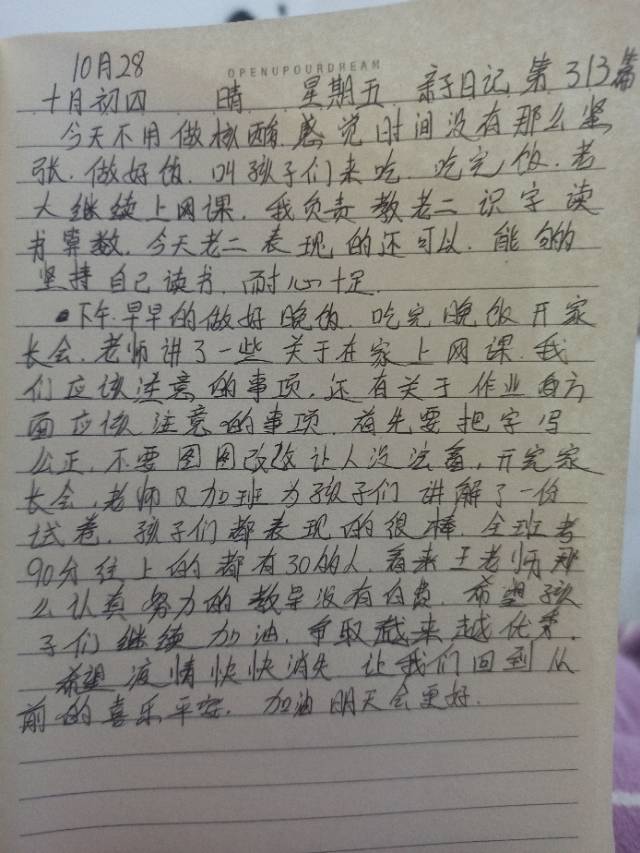 10月28
OPENUPOURDREAM
十月初四 晴 星期五 亲子日记 第313篇
今天不用做核酸,感觉时间没有那么坚
张.做好饭.叫孩子们来吃.吃完饭.老
大继续上网课.我负责教老二识字读
书算数.今天老二表现的还可以.能够的
坚持自己读书,耐心十足.
下午.早早的做好晚饭.吃完晚饭开家
长会.老师讲了一些关于在家上网课.我
们应该注意的事项.还有关于作业的方
面应该注意的事项.首先要把字写
公正.不要图图改改让人没法看,开完家
长会,老师又加班为孩子们讲解了一份
试卷.孩子们都表现的很棒.全班考
90分往上的都有30的人.看来王老师那
么认真努力的教导没有白费.希望孩
子们继续加油,争取越来越优秀.
希望疫情快快消失让我们回到从
前的喜乐平安.加油明天会更好.